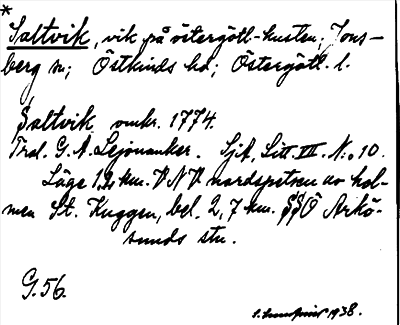 *
Saltvik, vik på östergötl-kusten; Jons-
berg sn; Östkinds hd; Östergötl. l.
Saltvik omkr. 1774.
Trol. G. A. Lejonanker. Sjk. Litt. VII. N:o 10.
Läge 1,2 km. VNV nordspetsen av hol-
men St. Kuggen, bel. 2,7 km. SSÖ Arkö-
sunds stn.
G.56.
1938.